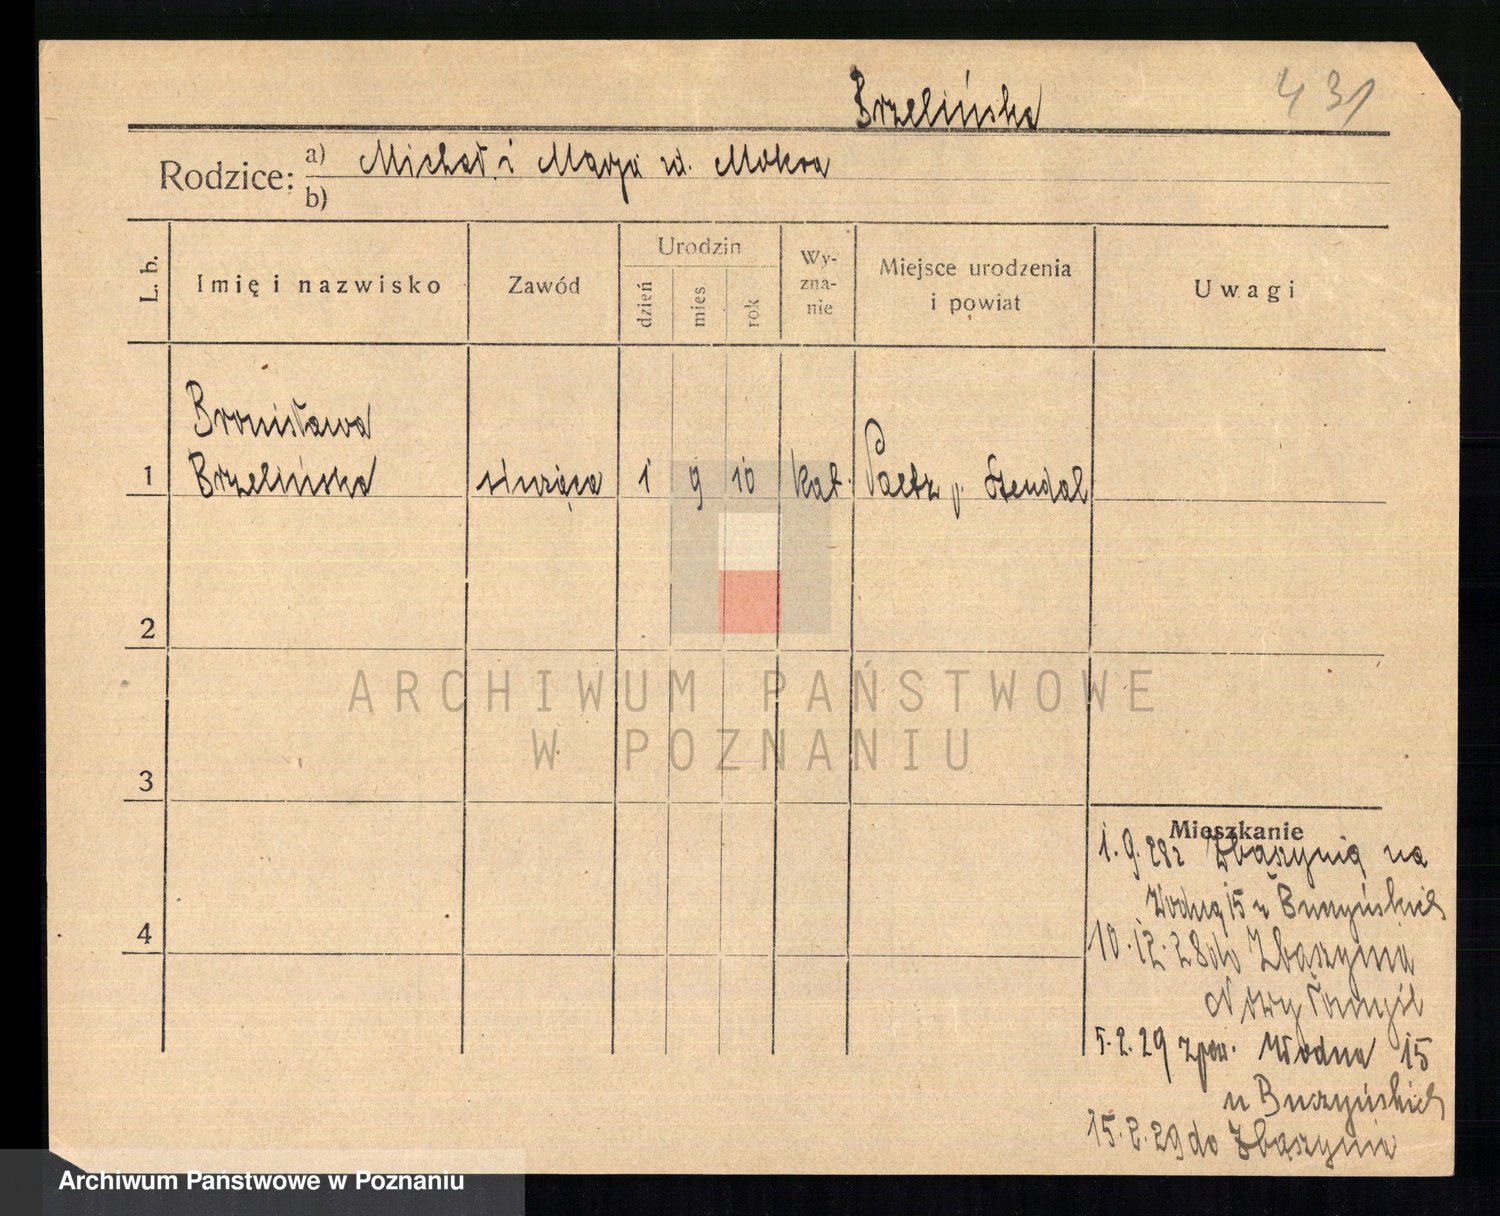 Brzelińska
431
Rodzice: a) Michał i Marja zd. Mokra
b)
L. b.
Imię i nazwisko
Zawód
Urodzin
dzień
mies.
rok
Wy-
zna-
nie
Miejsce urodzenia
i powiat
Uwagi
Bronisława
1 Brzelińska służąca 1 9 10 kat. Paetz p. Stendal
2
3
4
Mieszkanie
1.9.28 z Zbąszynia na
Wodną 15 u Buczyńskich
10.12.28 do Zbąszynia
Nowy Tomyśl
5.2.29 zpow. Wodna 15
u Buczyńskich
15.2.29 do Zbąszynia
ARCHIWUM PAŃSTWOWE
W POZNANIU
Archiwum Państwowe w Poznaniu